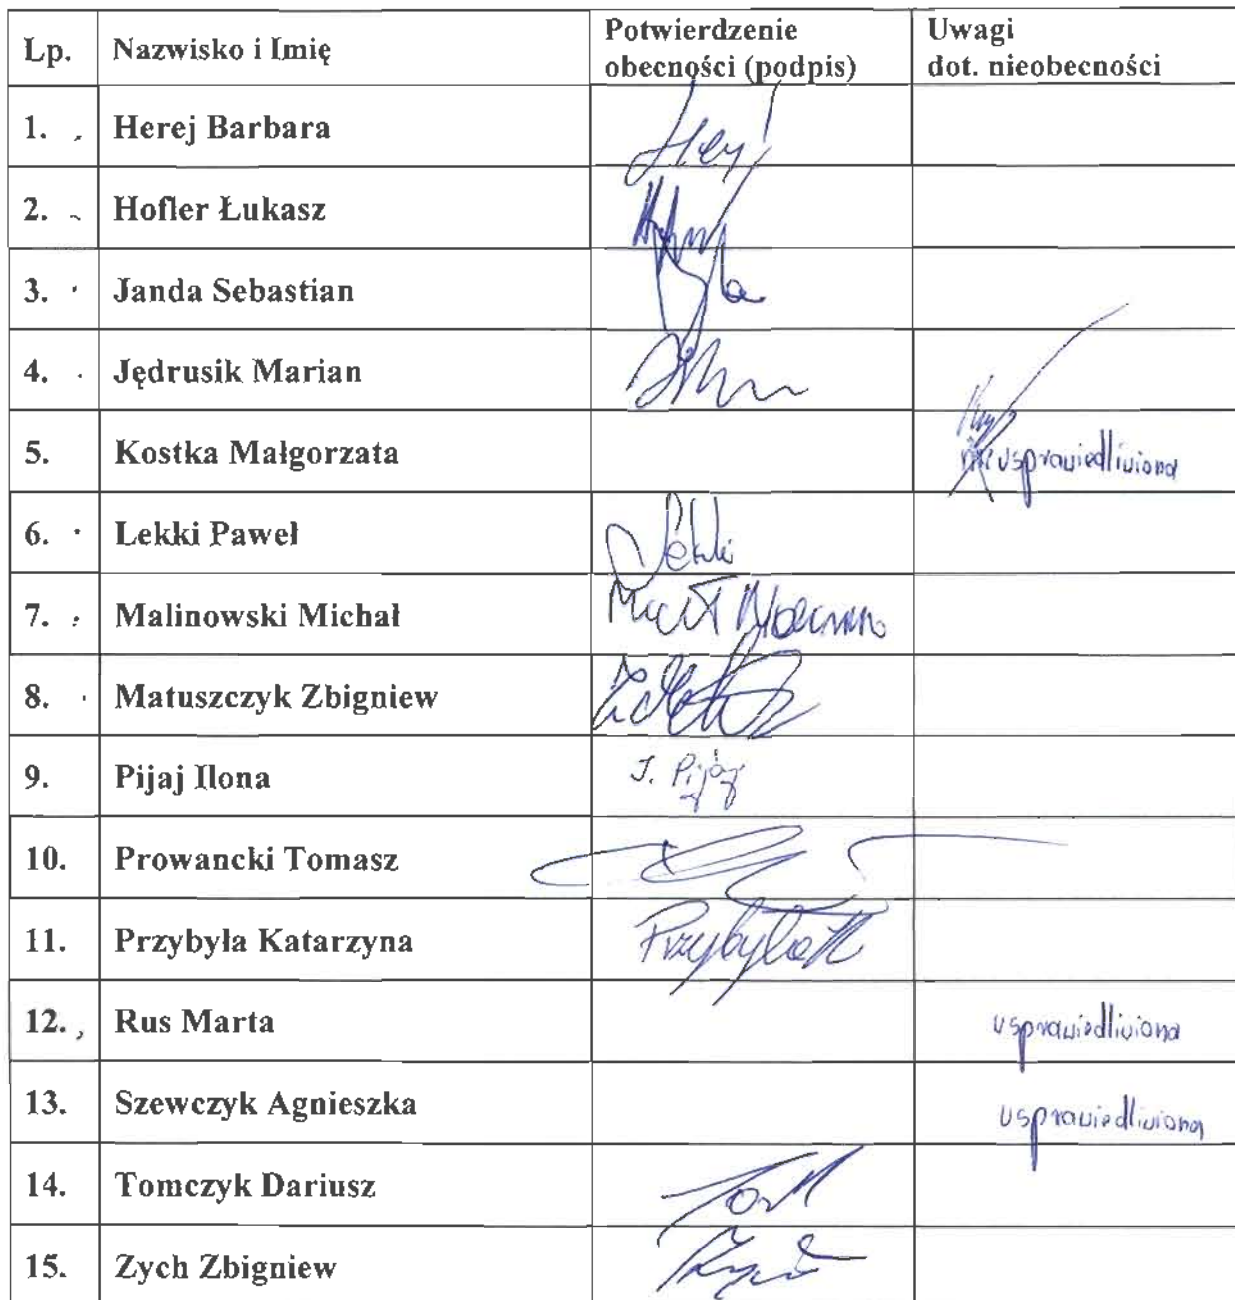 Lp. Nazwisko i Imię Potwierdzenie obecności (podpis) Uwagi dot. nieobecności
1. Herej Barbara
2. Hofler Łukasz
3. Janda Sebastian
4. Jędrusik Marian
5. Kostka Małgorzata usprawiedliwiona
6. Lekki Paweł
7. Malinowski Michał
8. Matuszczyk Zbigniew
9. Pijaj Ilona I. Pijaj
10. Prowancki Tomasz
11. Przybyła Katarzyna Przybyła K
12. Rus Marta usprawiedliwiona
13. Szewczyk Agnieszka usprawiedliwiona
14. Tomczyk Dariusz
15. Zych Zbigniew